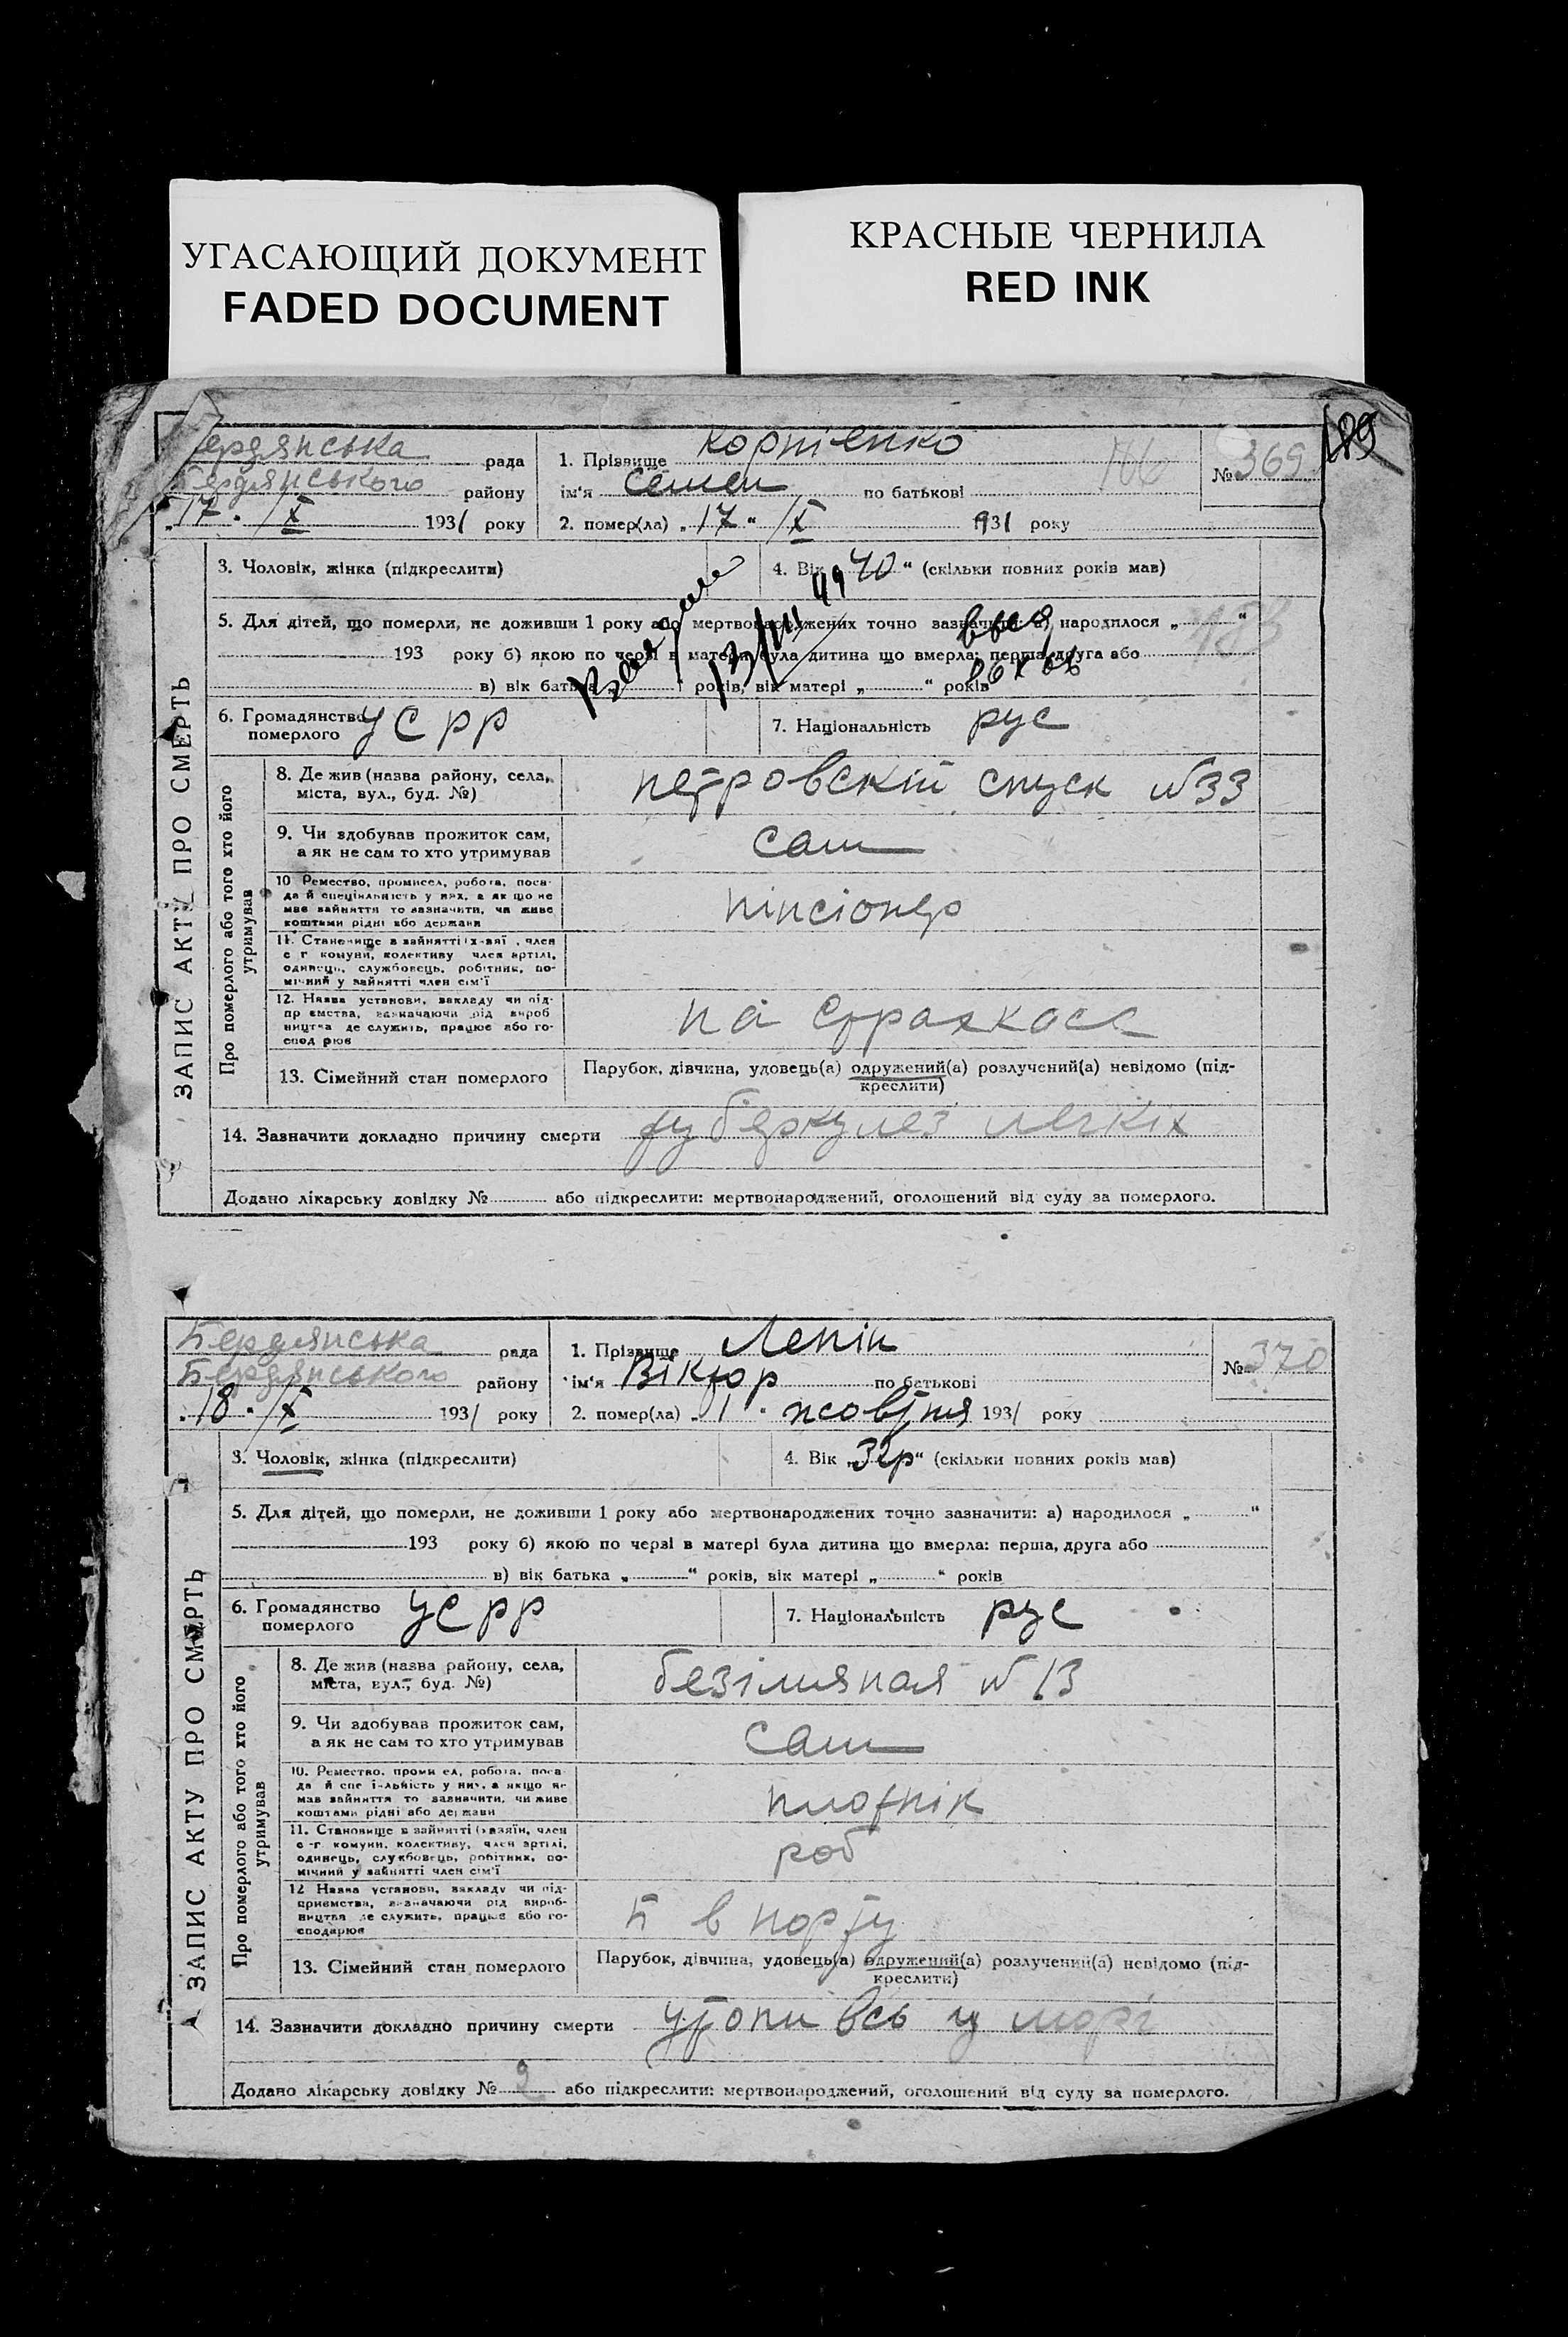 УГАСАЮЩИЙ ДОКУМЕНТ
FADED DOCUMENT
КРАСНЫЕ ЧЕРНИЛА
RED INK
189
ердянська рада
Бердянського району
„17" /X 1931 року
1. Прізвище Корпіенко
ім'я Семен по батькові
2. помер(ла) „17" /X 1931 року
№ 369
ЗАПИС АКТУ ПРО СМЕРТЬ
3. Чоловік, жінка (підкреслити)
4. Вік „40" (скільки повних років мав)
13/III 49
5. Для дітей, що померли, не доживши 1 року або мертвонароджених точно зазначити: а) народилося „ "
193 року б) якою по черзі в матери була дитина що вмерла: перша, друга або
в) вік батька „ " років, вік матері „ " років
6. Громадянство померлого УСРР
7. Національність рус
Про померлого або того хто його утримував
8. Де жив (назва району, села, міста, вул., буд. №) петровскій спуск №33
9. Чи здобував прожиток сам, а як не сам то хто утримував сам
10 Ремество, промисел, робота, посада й спеціяльність у них, а як що не має зайняття то зазначити, чи живе коштами рідні або держави пінсіонер
11. Становище в зайнятті (хазяї , член с г комуни, колективу член артілі, одинець, службовець, робітник, помічний у зайнятті член сім'ї
12. Назва установи, закладу чи підприємства, зазначаючи рід виробництва де служить, працює або господарює на Страхкасс
13. Сімейний стан померлого Парубок, дівчина, удовець(а) одружений(а) розлучений(а) невідомо (підкреслити)
14. Зазначити докладно причину смерти туберкулез легкіх
Додано лікарську довідку № або підкреслити: мертвонароджений, оголошений від суду за померлого.
Бердянська рада
Бердянського району
„18" /X 1931 року
1. Прізвище Ленін
ім'я Віктор по батькові
2. помер(ла) „1" жовтня 1931 року
№ 370
ЗАПИС АКТУ ПРО СМЕРТЬ
3. Чоловік, жінка (підкреслити)
4. Вік „32р" (скільки повних років мав)
5. Для дітей, що померли, не доживши 1 року або мертвонароджених точно зазначити: а) народилося „ "
193 року б) якою по черзі в матері була дитина що вмерла: перша, друга або
в) вік батька „ " років, вік матері „ " років
6. Громадянство померлого УСРР
7. Національність рус
Про померлого або того хто його утримував
8. Де жив (назва району, села, міста, вул., буд. №) безімяная № 13
9. Чи здобував прожиток сам, а як не сам то хто утримував сам
10. Ремество, промисел, робота, посада й спеціяльність у них, а якщо не мав зайняття то зазначити, чи живе коштами рідні або держави плотнік
11. Становище в зайнятті (хазяїн, член с-г комуни, колективу, член артілі, одинець, службовець, робітник, помічний у зайнятті член сім'ї роб
12 Назва установи, закладу чи підприємства, зазначаючи рід виробництва де служить, працює або господарює в порту
13. Сімейний стан померлого Парубок, дівчина, удовець(а) одружений(а) розлучений(а) невідомо (підкреслити)
14. Зазначити докладно причину смерти утопи всь у морі
Додано лікарську довідку № 9 або підкреслити: мертвонароджений, оголошений від суду за померлого.